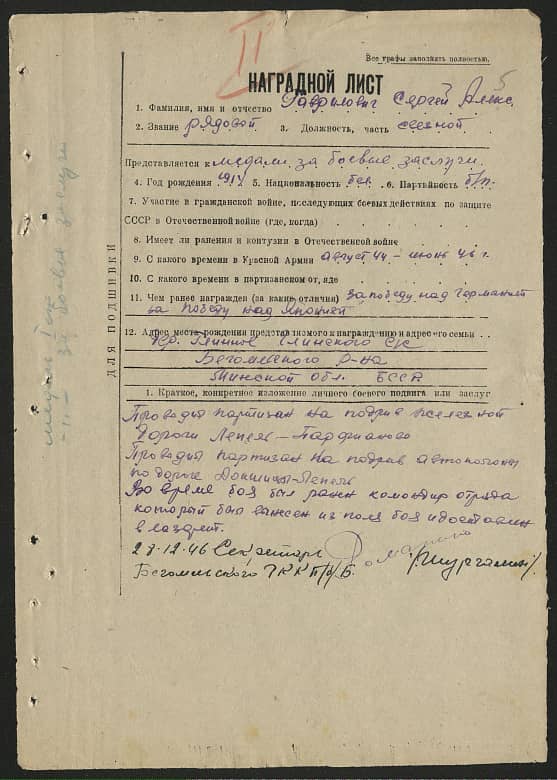 II
Все графы заполнять полностью.
5
НАГРАДНОЙ ЛИСТ
1. Фамилия, имя и отчество Гаврилович Сергей Алекс
2. Звание рядовой 3. Должность, часть связной
Представляется к медали за боевые заслуги
4. Год рождения 1914 5. Национальность бел 6. Партийность б/п.
7. Участие в гражданской войне, последующих боевых действиях по защите
СССР в Отечественной войне (где, когда)
8. Имеет ли ранения и контузии в Отечественной войне
9. С какого времени в Красной Армии август 44 – июнь 46 г.
10. С какого времени в партизанском отряде
11. Чем ранее награжден (за какие отличия) За победу над Германией
за победу над Японией
12. Адрес места рождения представляемого к награждению и адрес его семьи
Глинского с/с
Бегомльского р-на
Минской обл. БССР
1. Краткое, конкретное изложение личного боевого подвига или заслуг
Проводил партизан на подрыв железной
дороги Лепель – Парафианово
Проводил партизан на подрыв автоколонны
по дороге Докшицы-Лепель
Во время боя был ранен командир отряда
который был вынесен из поля боя и доставлен
в лазарет.
28.12.46 Секретарь
Бегомльского РК КП/б/Б.
ДЛЯ ПОДШИВКИ
за боевые заслуги